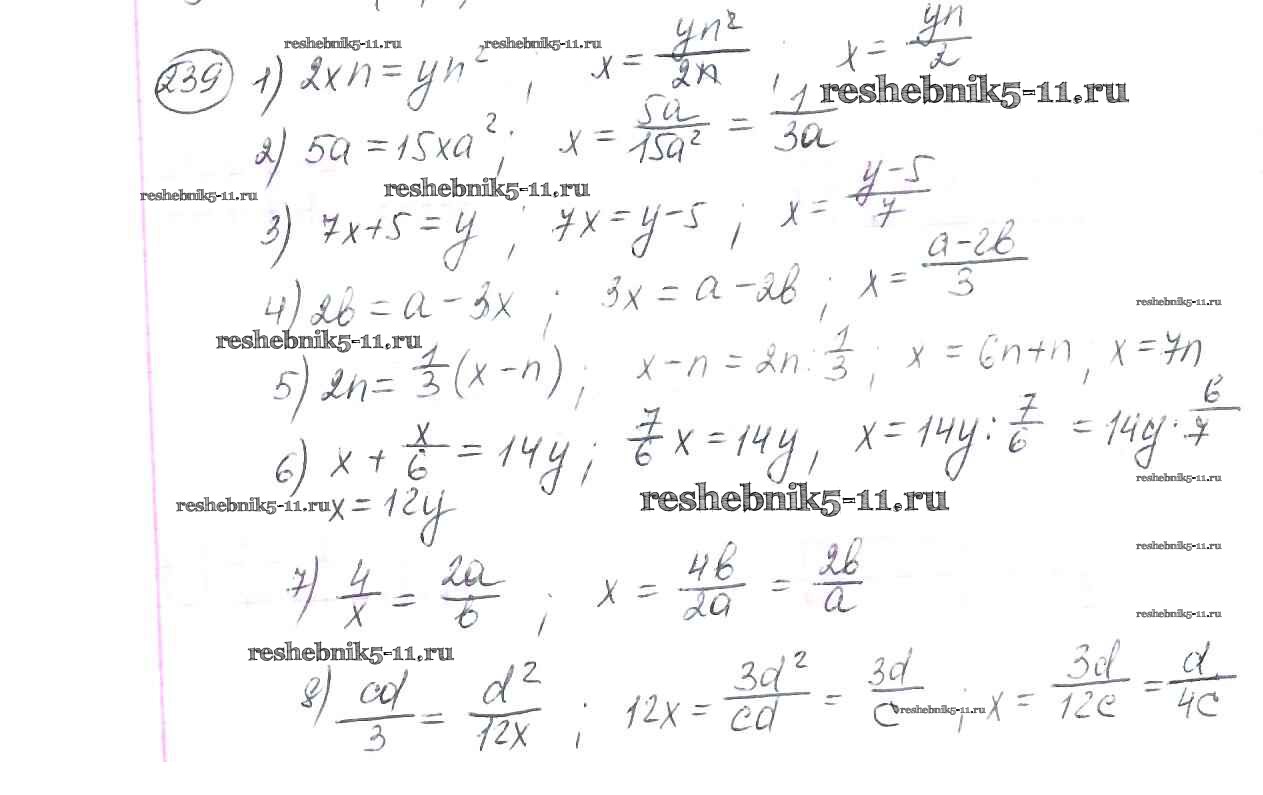 reshebnik5-11.ru reshebnik5-11.ru
239 1) 2xn = yn² ; x = yn²/2n ; x = yn/2
reshebnik5-11.ru
2) 5a = 15xa² ; x = 5a/15a² = 1/3a
reshebnik5-11.ru reshebnik5-11.ru
3) 7x+5 = y ; 7x = y-5 ; x = y-5/7
4) 2b = a - 3x ; 3x = a - 2b ; x = a-2b/3
reshebnik5-11.ru
reshebnik5-11.ru
5) 2n = 1/3 (x-n) ; x-n = 2n : 1/3 ; x = 6n+n, x = 7n
6) x + x/6 = 14y ; 7/6 x = 14y, x = 14y : 7/6 = 14y · 6/7
reshebnik5-11.ru
reshebnik5-11.ru x = 12y reshebnik5-11.ru
reshebnik5-11.ru
7) 4/x = 2a/b ; x = 4b/2a = 2b/a
reshebnik5-11.ru
reshebnik5-11.ru
8) cd/3 = d²/12x ; 12x = 3d²/cd = 3d/c ; x = 3d/12c = d/4c
reshebnik5-11.ru